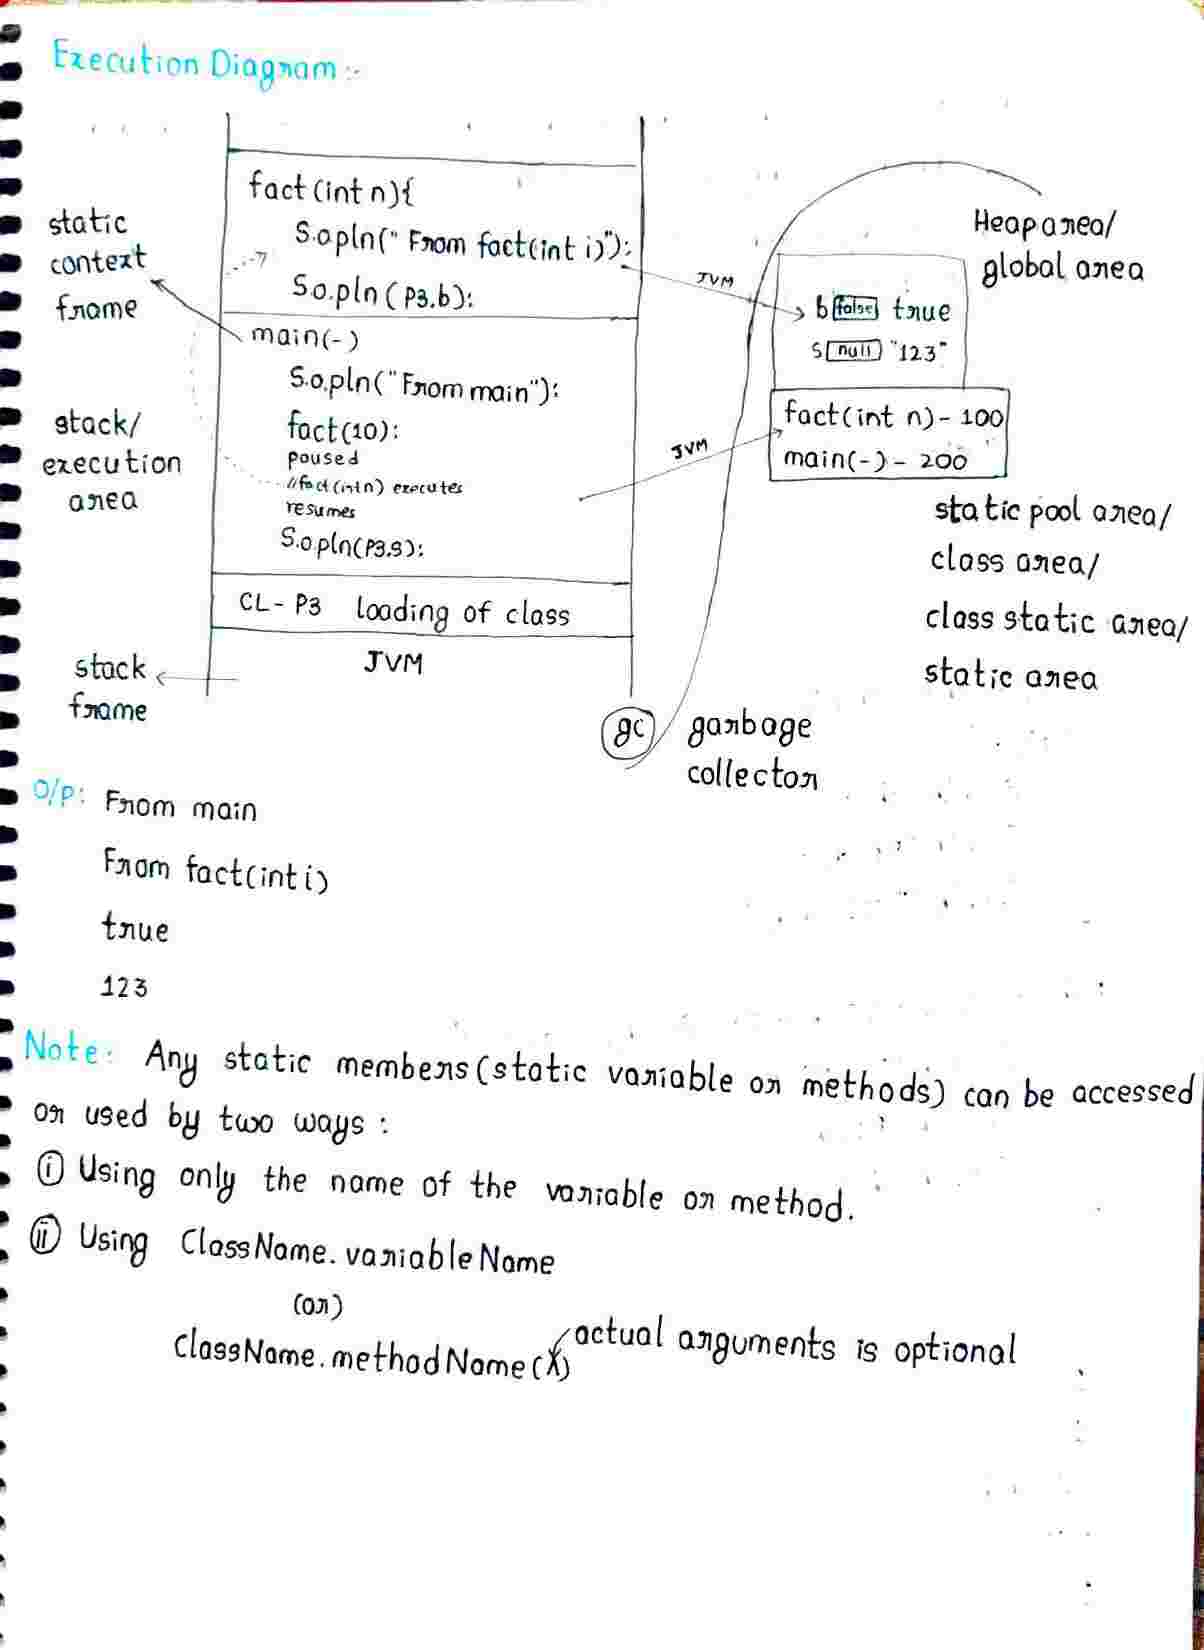 Execution Diagram :-
fact(int n){
S.o.pln("From fact(int i)");
S.o.pln(P3.b);
main(-)
S.o.pln("From main");
fact(10);
paused
//fact(int n) executes
resumes
S.o.pln(P3.s);
CL-P3 loading of class
JVM
static
context
frame
stack/
execution
area
stack
frame
JVM
JVM
Heap area/
global area
b false true
s null "123"
fact(int n) - 100
main(-) - 200
static pool area/
class area/
class static area/
static area
gc garbage
collector
O/P: From main
From fact(int i)
true
123
Note: Any static members (static variable or methods) can be accessed
or used by two ways :
(i) Using only the name of the variable or method.
(ii) Using ClassName.variableName
(or)
ClassName.methodName(x) actual arguments is optional